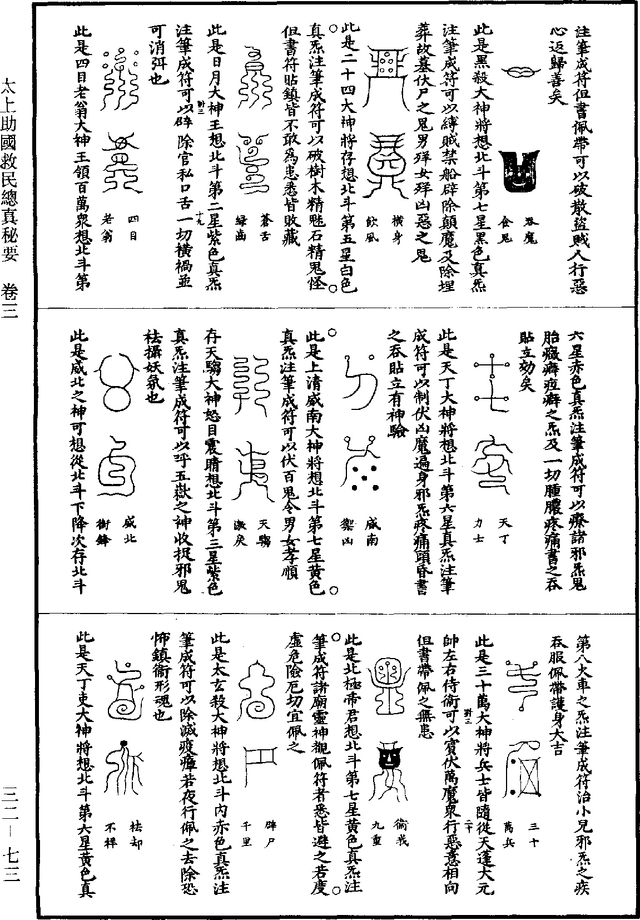 注筆成符但書佩帶可以破散盜賊人行惡
心返歸善矣
吞魔
食鬼
此是黑殺大神將想北斗第七星黑色真炁
注筆成符可以縛賊禁船辟除顛魔及除埋
葬故墓伏尸之鬼男殍女殍凶惡之鬼
橫身
飲風
此是二十四大神將存想北斗第五星白色
真炁注筆成符可以破樹木精魅石精鬼怪
但書符貼鎮皆不敢為患悉皆收藏
蒼舌
綠齒
此是日月大神王想北斗第二星紫色真炁
注筆成符可以辟除官私口舌一切橫禍並
可消弭也
四目
老翁
此是四目老翁大神王領百萬衆想北斗第
六星赤色真炁注筆成符可以療諸邪炁鬼
胎癥癖痃癖之炁及一切腫膿疼痛書之吞
貼立効矣
天丁
力士
此是天丁大神將想北斗第六星真炁注筆
成符可以制伏凶魔遍身邪炁疼痛頭昏書
之吞貼立有神驗
威南
禦凶
此是上清威南大神將想北斗第七星黃色
真炁注筆成符可以伏百鬼令男女孝順
天騶
激戾
存天騶大神怒目震睛想北斗第三星紫色
真炁注筆成符可以呼五嶽之神收捉邪鬼
祛攝妖氛也
威北
銜鋒
此是威北之神可想從北斗下降次存北斗
第八火車之炁注筆成符治小兒邪炁之疾
吞服佩帶護身大吉
三十
萬兵
此是三十萬大神將兵士皆隨從天蓬大元
帥左右侍衛可以賓伏萬魔衆行惡意相向
但書帶佩之無患
衞我
九重
此是北極帝君想北斗第七星黃色真炁注
筆成符諸廟靈神觀佩符者悉皆避之若度
虛危險厄切宜佩之
辟尸
千里
此是太玄殺大神將想北斗內赤色真炁注
筆成符可以除滅疫瘴若夜行佩之去除恐
怖鎮衛形魂也
祛却
不祥
此是天丁吏大神將想北斗第六星黃色真
太上助國救民總真秘要 卷三
三二—七三